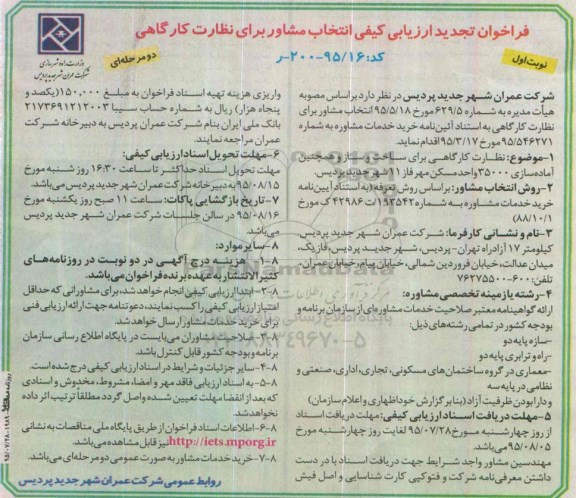 فراخوان تجدید ارزیابی کیفی انتخاب مشاور برای نظارت کارگاهی
کد: ۹۵/۱۶-۲۰۰-ر
نوبت اول
دو مرحله‌ای
وزارت راه و شهرسازی
شرکت عمران شهر جدید پردیس
شرکت عمران شهر جدید پردیس در نظر دارد براساس مصوبه
هیأت مدیره به شماره ۶۲۹/۵ مورخ ۹۵/۵/۱۸ انتخاب مشاور برای
نظارت کارگاهی به استناد آئین‌نامه خرید خدمات مشاوره به شماره
۹۵/۵۴۶۲۷۱ مورخ ۹۵/۳/۱۷ اقدام نماید.
۱-موضوع: نظارت کارگاهی برای ساخت و ساز و همچنین
آماده‌سازی ۳۵۰۰۰ واحد مسکن مهر فاز ۱۱ شهر جدید پردیس.
۲-روش انتخاب مشاور: براساس روش تعرفه (به استناد آیین‌نامه
خرید خدمات مشاوره به شماره ۱۹۳۵۴۲/ت ۴۲۹۸۶ک مورخ
۸۸/۱۰/۱)
۳-نام و نشانی کارفرما: شرکت عمران شهر جدید پردیس،
کیلومتر ۱۷ آزادراه تهران-پردیس، شهر جدید پردیس، فاز یک،
میدان عدالت، خیابان فروردین شمالی، خیابان پیام، خیابان عمران.
تلفن: ۶۰۰-۷۶۲۷۵۵۰۰
۴-رشته یا زمینه تخصصی مشاوره:
ارائه گواهینامه معتبر صلاحیت خدمات مشاوره‌ای از سازمان برنامه و
بودجه کشور در تمامی رشته‌های ذیل:
-سازه پایه دو
-راه و ترابری پایه دو
-معماری در گروه ساختمان‌های مسکونی، تجاری، اداری، صنعتی و
نظامی در پایه سه
و دارا بودن ظرفیت آزاد (بنابر گزارش خوداظهاری و اعلام سازمان)
۵-مهلت دریافت اسناد ارزیابی کیفی: مهلت دریافت اسناد
از روز چهارشنبه مورخ ۹۵/۰۷/۲۸ لغایت روز چهارشنبه مورخ
۹۵/۰۸/۰۵ می‌باشد.
مهندسین مشاور واجد شرایط جهت دریافت اسناد با در دست
داشتن معرفی‌نامه شرکت و فتوکپی کارت شناسایی و اصل فیش
واریزی هزینه تهیه اسناد فراخوان به مبلغ ۱۵۰,۰۰۰ (یکصد و
پنجاه هزار) ریال به شماره حساب سیبا ۲۱۷۳۶۹۱۲۱۲۰۰۳
بانک ملی ایران بنام شرکت عمران پردیس به دبیرخانه شرکت
عمران مراجعه نمایند.
۶-مهلت تحویل اسناد ارزیابی کیفی:
مهلت تحویل اسناد حداکثر تا ساعت ۱۶:۳۰ روز شنبه مورخ
۹۵/۰۸/۱۵ به دبیرخانه شرکت عمران شهر جدید پردیس می‌باشد.
۷-تاریخ بازگشایی پاکات: ساعت ۱۱ صبح روز یکشنبه مورخ
۹۵/۰۸/۱۶ در سالن جلسات شرکت عمران شهر جدید پردیس
می‌باشد.
۸-سایر موارد:
۸-۱- هزینه درج آگهی در دو نوبت در روزنامه‌های
کثیرالانتشار به عهده برنده فراخوان می‌باشد.
۸-۲- ابتدا ارزیابی کیفی انجام خواهد شد، برای مشاورانی که حداقل
امتیاز ارزیابی کیفی را کسب نمایند، دعوتنامه جهت ارائه ارزیابی فنی
برای خرید خدمات مشاور ارسال خواهد شد.
۸-۳- صلاحیت مشاوران می‌بایست در پایگاه اطلاع رسانی سازمان
برنامه و بودجه کشور قابل کنترل باشد.
۸-۴-سایر جزئیات و شرایط در اسناد ارزیابی کیفی درج شده است.
۸-۵-به اسناد ارزیابی فاقد مهر و امضا، مشروط، مخدوش و اسنادی
که بعد از انقضا مهلت تعیین شده واصل گردد مطلقاً ترتیب اثر داده
نخواهد شد.
۸-۶-اطلاعات اسناد فراخوان از طریق پایگاه ملی مناقصات به نشانی
http://iets.mporg.ir نیز قابل مشاهده می‌باشد.
۸-۷-خرید خدمات مشاور به صورت عمومی دو مرحله‌ای می‌باشد.
روابط عمومی شرکت عمران شهر جدید پردیس